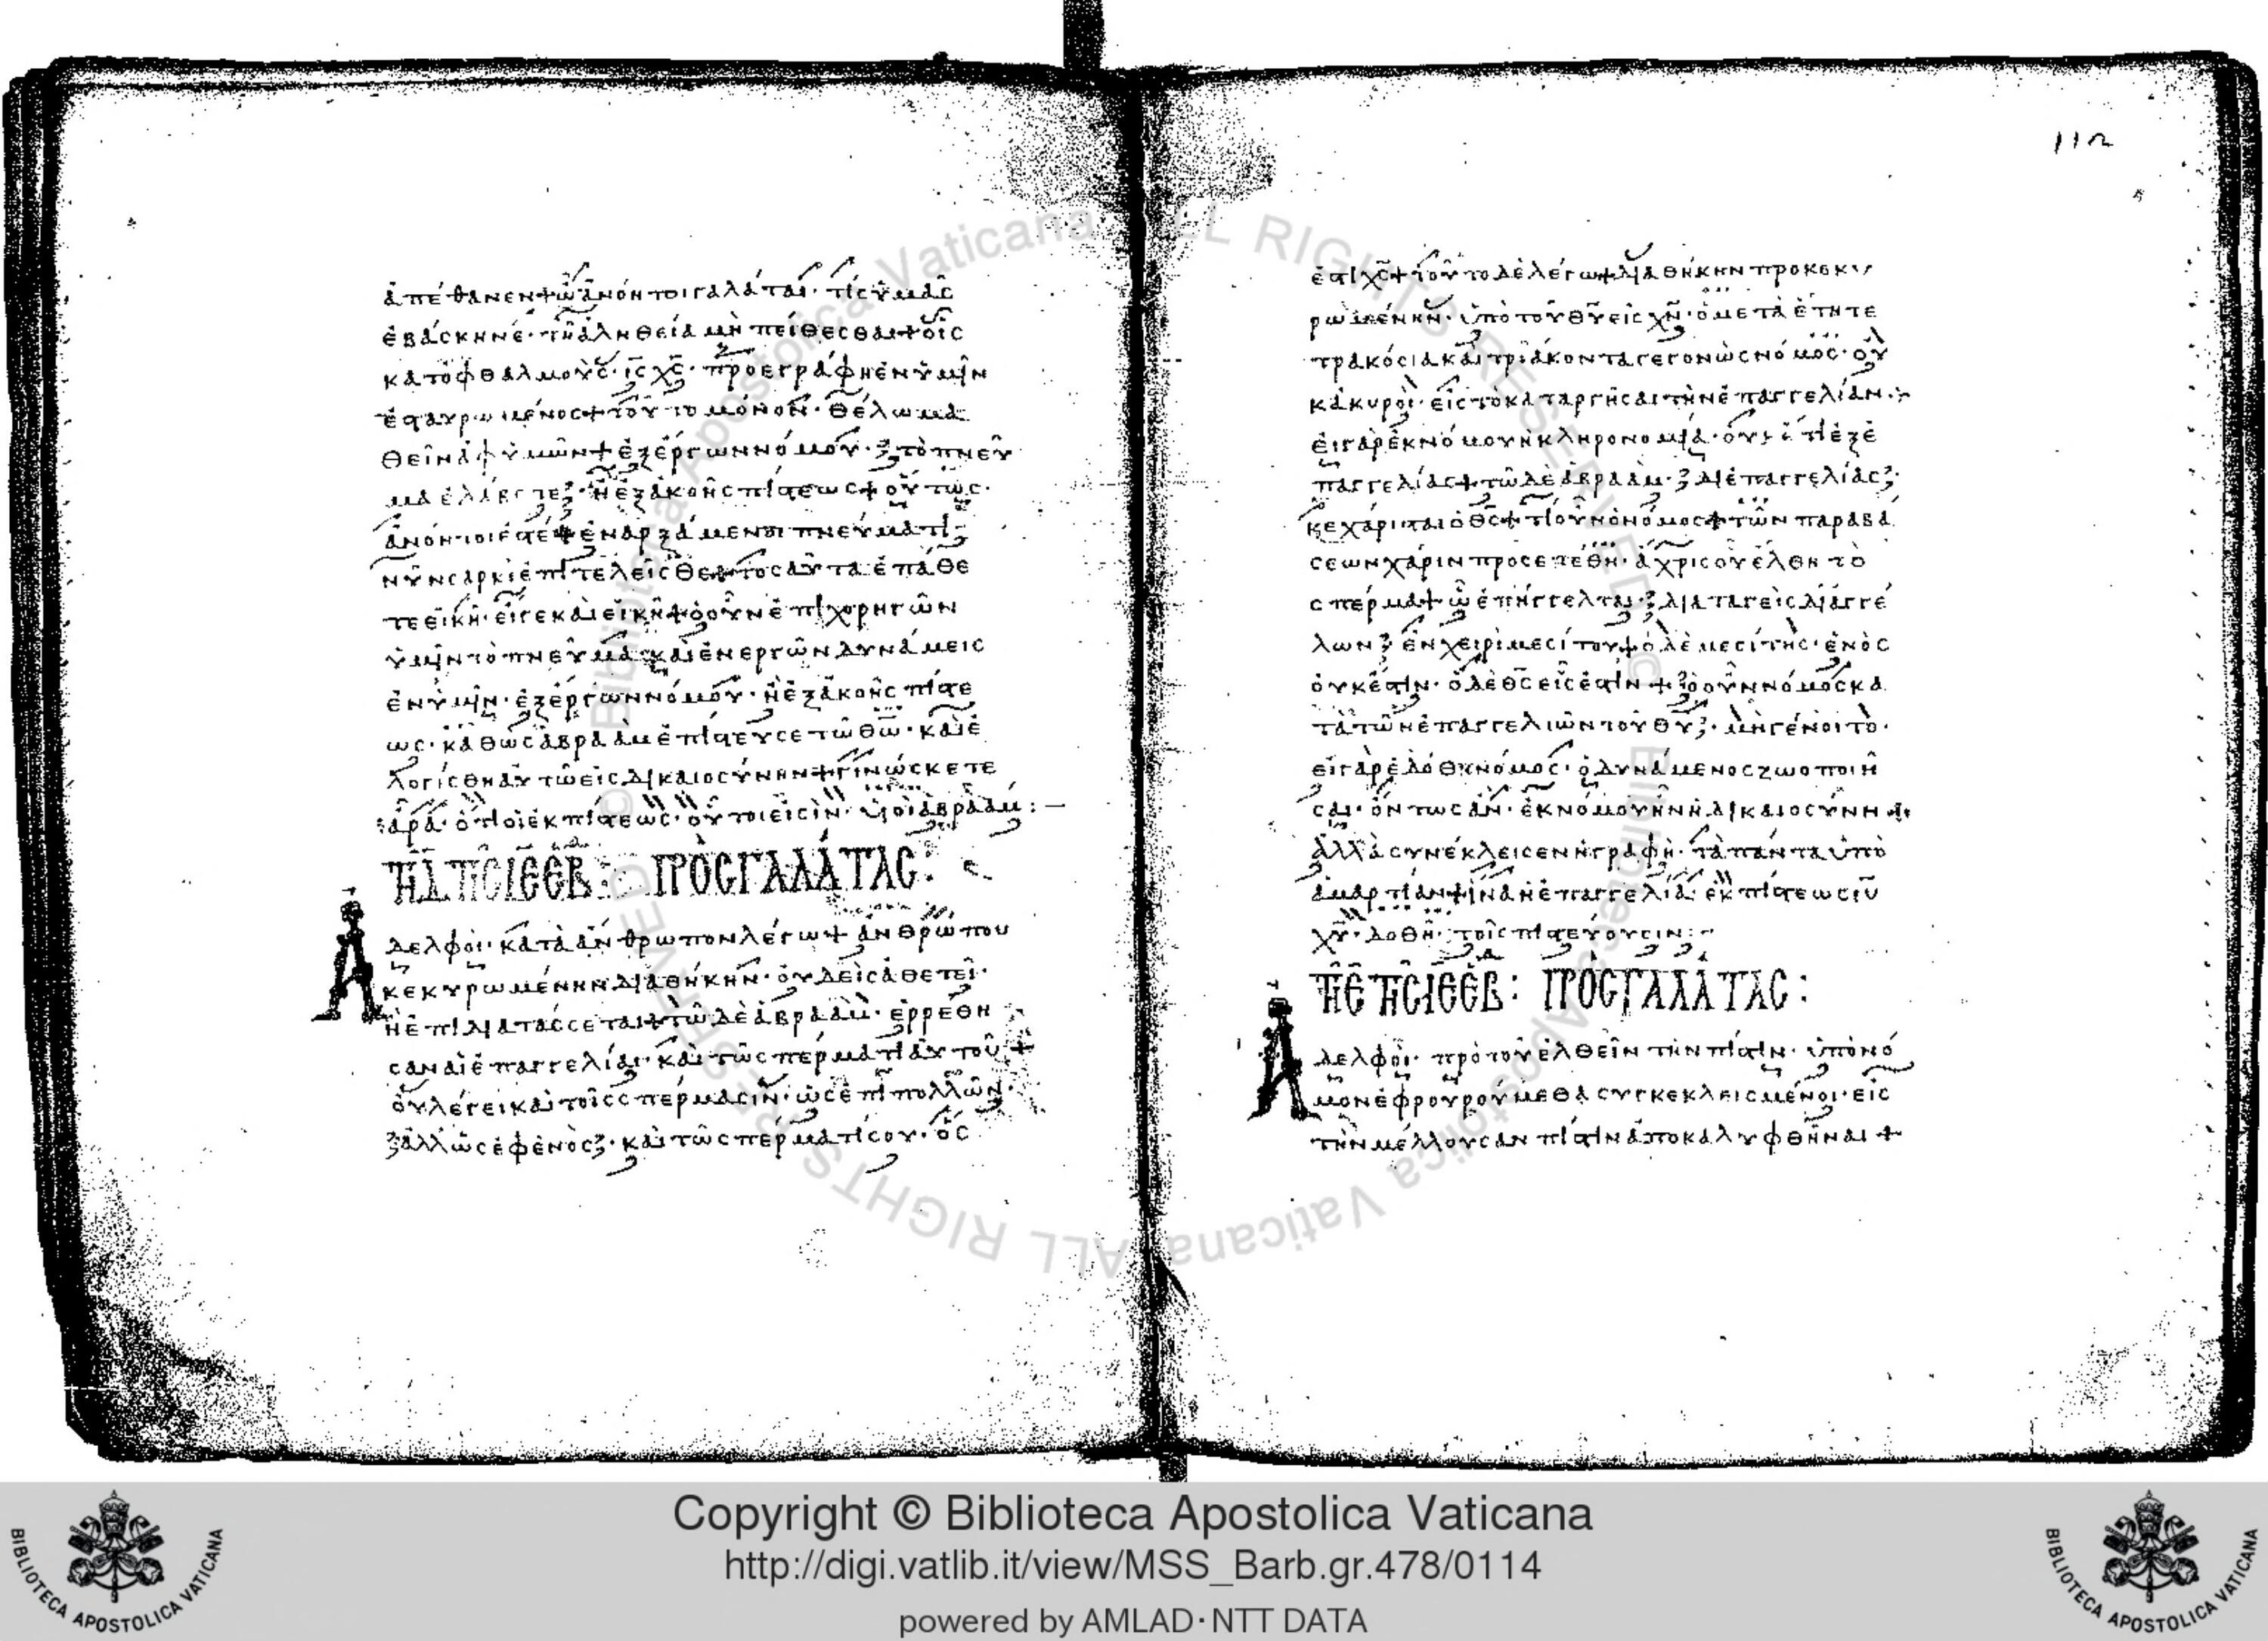 ἀπέθανεν + ὦ ἀνόητοι γαλάται· τίς ὑμᾶς
ἐβάσκηνε· τῆ ἀληθεία μὴ πείθεσθαι + οἷς
κατ ὀφθαλμοὺς· ις χς· προεγράφη ἐν ὑμῖν
ἐσταυρωμένος + τοῦτο μόνον· θέλω μα
θεῖν ἀφ ὑμῶν + ἐξ ἔργων νόμου· τὸ πνεῦ
μα ἐλάβετε· ἢ ἐξ ἀκοῆς πίστεως + οὕτως·
ἀνόητοί ἐστε + ἐναρξάμενοι πνεύματι
νῦν σαρκὶ ἐπιτελεῖσθε + τοσαῦτα ἐπάθε
τε εἰκῆ· εἴ γε καὶ εἰκῆ + ὁ οὖν ἐπιχορηγῶν
ὑμῖν τὸ πνεῦμα καὶ ἐνεργῶν δυνάμεις
ἐν ὑμῖν· ἐξ ἔργων νόμου· ἢ ἐξ ἀκοῆς πίστε
ως· καθὼς ἀβραὰμ ἐπίστευσε τῶ θω· καὶ ἐ
λογίσθη αὐτῶ εἰς δικαιοσύνην + γινώσκετε
ἄρα· ὅτι οἱ ἐκ πίστεως· οὗτοι εἰσὶν· υἱοὶ ἀβραάμ :—
ΠΡΟΣ ΓΑΛΑΤΑΣ :
Αδελφοὶ· κατὰ ἄνθρωπον λέγω + ἀνθρώπου
κεκυρωμένην διαθήκην· οὐδεὶς ἀθετεῖ·
ἢ ἐπιδιατάσσεται + τῶ δὲ ἀβραὰμ· ἐρρέθη
σαν αἱ ἐπαγγελίαι· καὶ τῶ σπέρματι αὐτοῦ +
οὐ λέγει καὶ τοῖς σπέρμασιν· ὡς ἐπὶ πολλῶν·
ἀλλ ὡς ἐφ ἑνὸς· καὶ τῶ σπέρματί σου· ὅς
112
ἐστι χς + τοῦτο δὲ λέγω + διαθήκην προκεκυ
ρωμένην· ὑπὸ τοῦ θυ εἰς χν· ὁ μετὰ ἔτη τε
τρακόσια καὶ τριάκοντα γεγονὼς νόμος· οὐ
κ ἀκυροῖ· εἰς τὸ καταργῆσαι τὴν ἐπαγγελίαν·
εἰ γὰρ ἐκ νόμου ἡ κληρονομία· οὐκέτι ἐξ ἐ
παγγελίας + τῶ δὲ ἀβραὰμ· δι ἐπαγγελίας
κεχάρισται ὁ θς + τί οὖν ὁ νόμος + τῶν παραβά
σεων χάριν προσετέθη· ἄχρις οὗ ἔλθη τὸ
σπέρμα + ὧ ἐπήγγελται· διαταγεὶς δι ἀγγέ
λων ἐν χειρὶ μεσίτου + ὁ δὲ μεσίτης· ἑνὸς
οὐκ ἔστιν· ὁ δὲ θς εἷς ἐστὶν + ὁ οὖν νόμος κα
τὰ τῶν ἐπαγγελιῶν τοῦ θυ· μὴ γένοιτο·
εἰ γὰρ ἐδόθη νόμος· ὁ δυνάμενος ζωοποιῆ
σαι· ὄντως ἂν· ἐκ νόμου ἦν ἡ δικαιοσύνη +
ἀλλὰ συνέκλεισεν ἡ γραφὴ· τὰ πάντα ὑπὸ
ἁμαρτίαν + ἵνα ἡ ἐπαγγελία· ἐκ πίστεως ιυ
χυ· δοθῆ· τοῖς πιστεύουσιν :
ΠΡΟΣ ΓΑΛΑΤΑΣ :
Αδελφοὶ· πρὸ τοῦ ἐλθεῖν τὴν πίστιν· ὑπὸ νό
μον ἐφρουρούμεθα συγκεκλεισμένοι· εἰς
τὴν μέλλουσαν πίστιν ἀποκαλυφθῆναι +
Copyright © Biblioteca Apostolica Vaticana
http://digi.vatlib.it/view/MSS_Barb.gr.478/0114
powered by AMLAD·NTT DATA
BIBLIOTECA APOSTOLICA VATICANA
BIBLIOTECA APOSTOLICA VATICANA